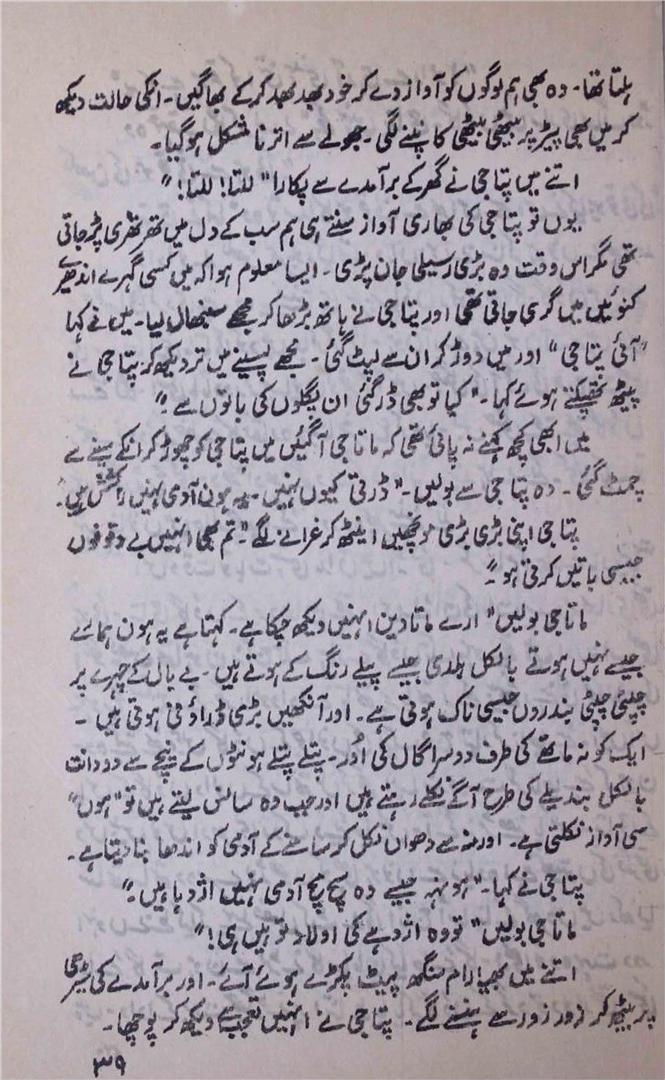 ہلتا تھا۔ وہ بھی ہم لوگوں کو آواز دے کر خود بھد بھد کر کے بھاگیں۔ انکی حالت دیکھ
کر میں بھی پیڑ پر بیٹھی بیٹھی کانپنے لگی۔ جھولے سے اترنا مشکل ہو گیا۔
اتنے میں پتا جی نے گھر کے برآمدے سے پکارا "للتا! للتا!"
یوں تو پتا جی کی بھاری آواز سنتے ہی ہم سب کے دل میں تھر تھری پڑ جاتی
تھی مگر اس وقت وہ بڑی رسیلی جان پڑی۔ ایسا معلوم ہوا کہ میں کسی گہرے اندھیرے
کنوئیں میں گری جاتی تھی اور پتا جی نے ہاتھ بڑھا کر مجھے سنبھال لیا۔ میں نے کہا
"آئی پتا جی" اور میں دوڑ کر ان سے لپٹ گئی۔ مجھے پسینے میں تر دیکھ کر پتا جی نے
پیٹھ تھپکتے ہوئے کہا۔ "کیا تو بھی ڈر گئی ان پگلوں کی باتوں سے۔"
میں ابھی کچھ کہنے نہ پائی تھی کہ ماتا جی آ گئیں میں پتا جی کو چھوڑ کر انکے سینے سے
چمٹ گئی۔ وہ پتا جی سے بولیں۔ "ڈرتی کیوں نہیں۔ یہ ہون آدمی نہیں راکشش ہیں۔"
پتا جی اپنی بڑی بڑی مونچھیں اینٹھ کر غرانے لگے "تم بھی انہیں بے وقوفوں
جیسی باتیں کرتی ہو۔"
ماتا جی بولیں "ارے ماتا دین انہیں دیکھ چکا ہے۔ کہتا ہے یہ ہون ہمارے
جیسے نہیں ہوتے بالکل ہلدی جیسے پیلے رنگ کے ہوتے ہیں۔ بے بال کے چہرے پر
چپٹی چپٹی بندروں جیسی ناک ہوتی ہے۔ اور آنکھیں بڑی ڈراؤنی ہوتی ہیں۔
ایک کونہ ماتھے کی طرف دوسرا گال کی اور۔ پتلے پتلے ہونٹوں کے نیچے سے دو دانت
بالکل بندیلے کی طرح آگے نکلے رہتے ہیں اور جب وہ سانس لیتے ہیں تو "ہون"
سی آواز نکلتی ہے۔ اور منہ سے دھواں نکل کر سامنے کے آدمی کو اندھا بنا دیتا ہے۔
پتا جی نے کہا۔ "ہونہہ جیسے وہ سچ مچ آدمی نہیں اژدہا ہیں۔"
ماتا جی بولیں "تو وہ اژدہے کی اولاد تو ہیں ہی!"
اتنے میں بھیا رام سنگھ پیٹ پکڑے ہوئے آئے۔ اور برآمدے کی سیڑھی
پر بیٹھ کر زور زور سے ہنسنے لگے۔ پتا جی نے انہیں تعجب سے دیکھ کر پوچھا۔
۳۹